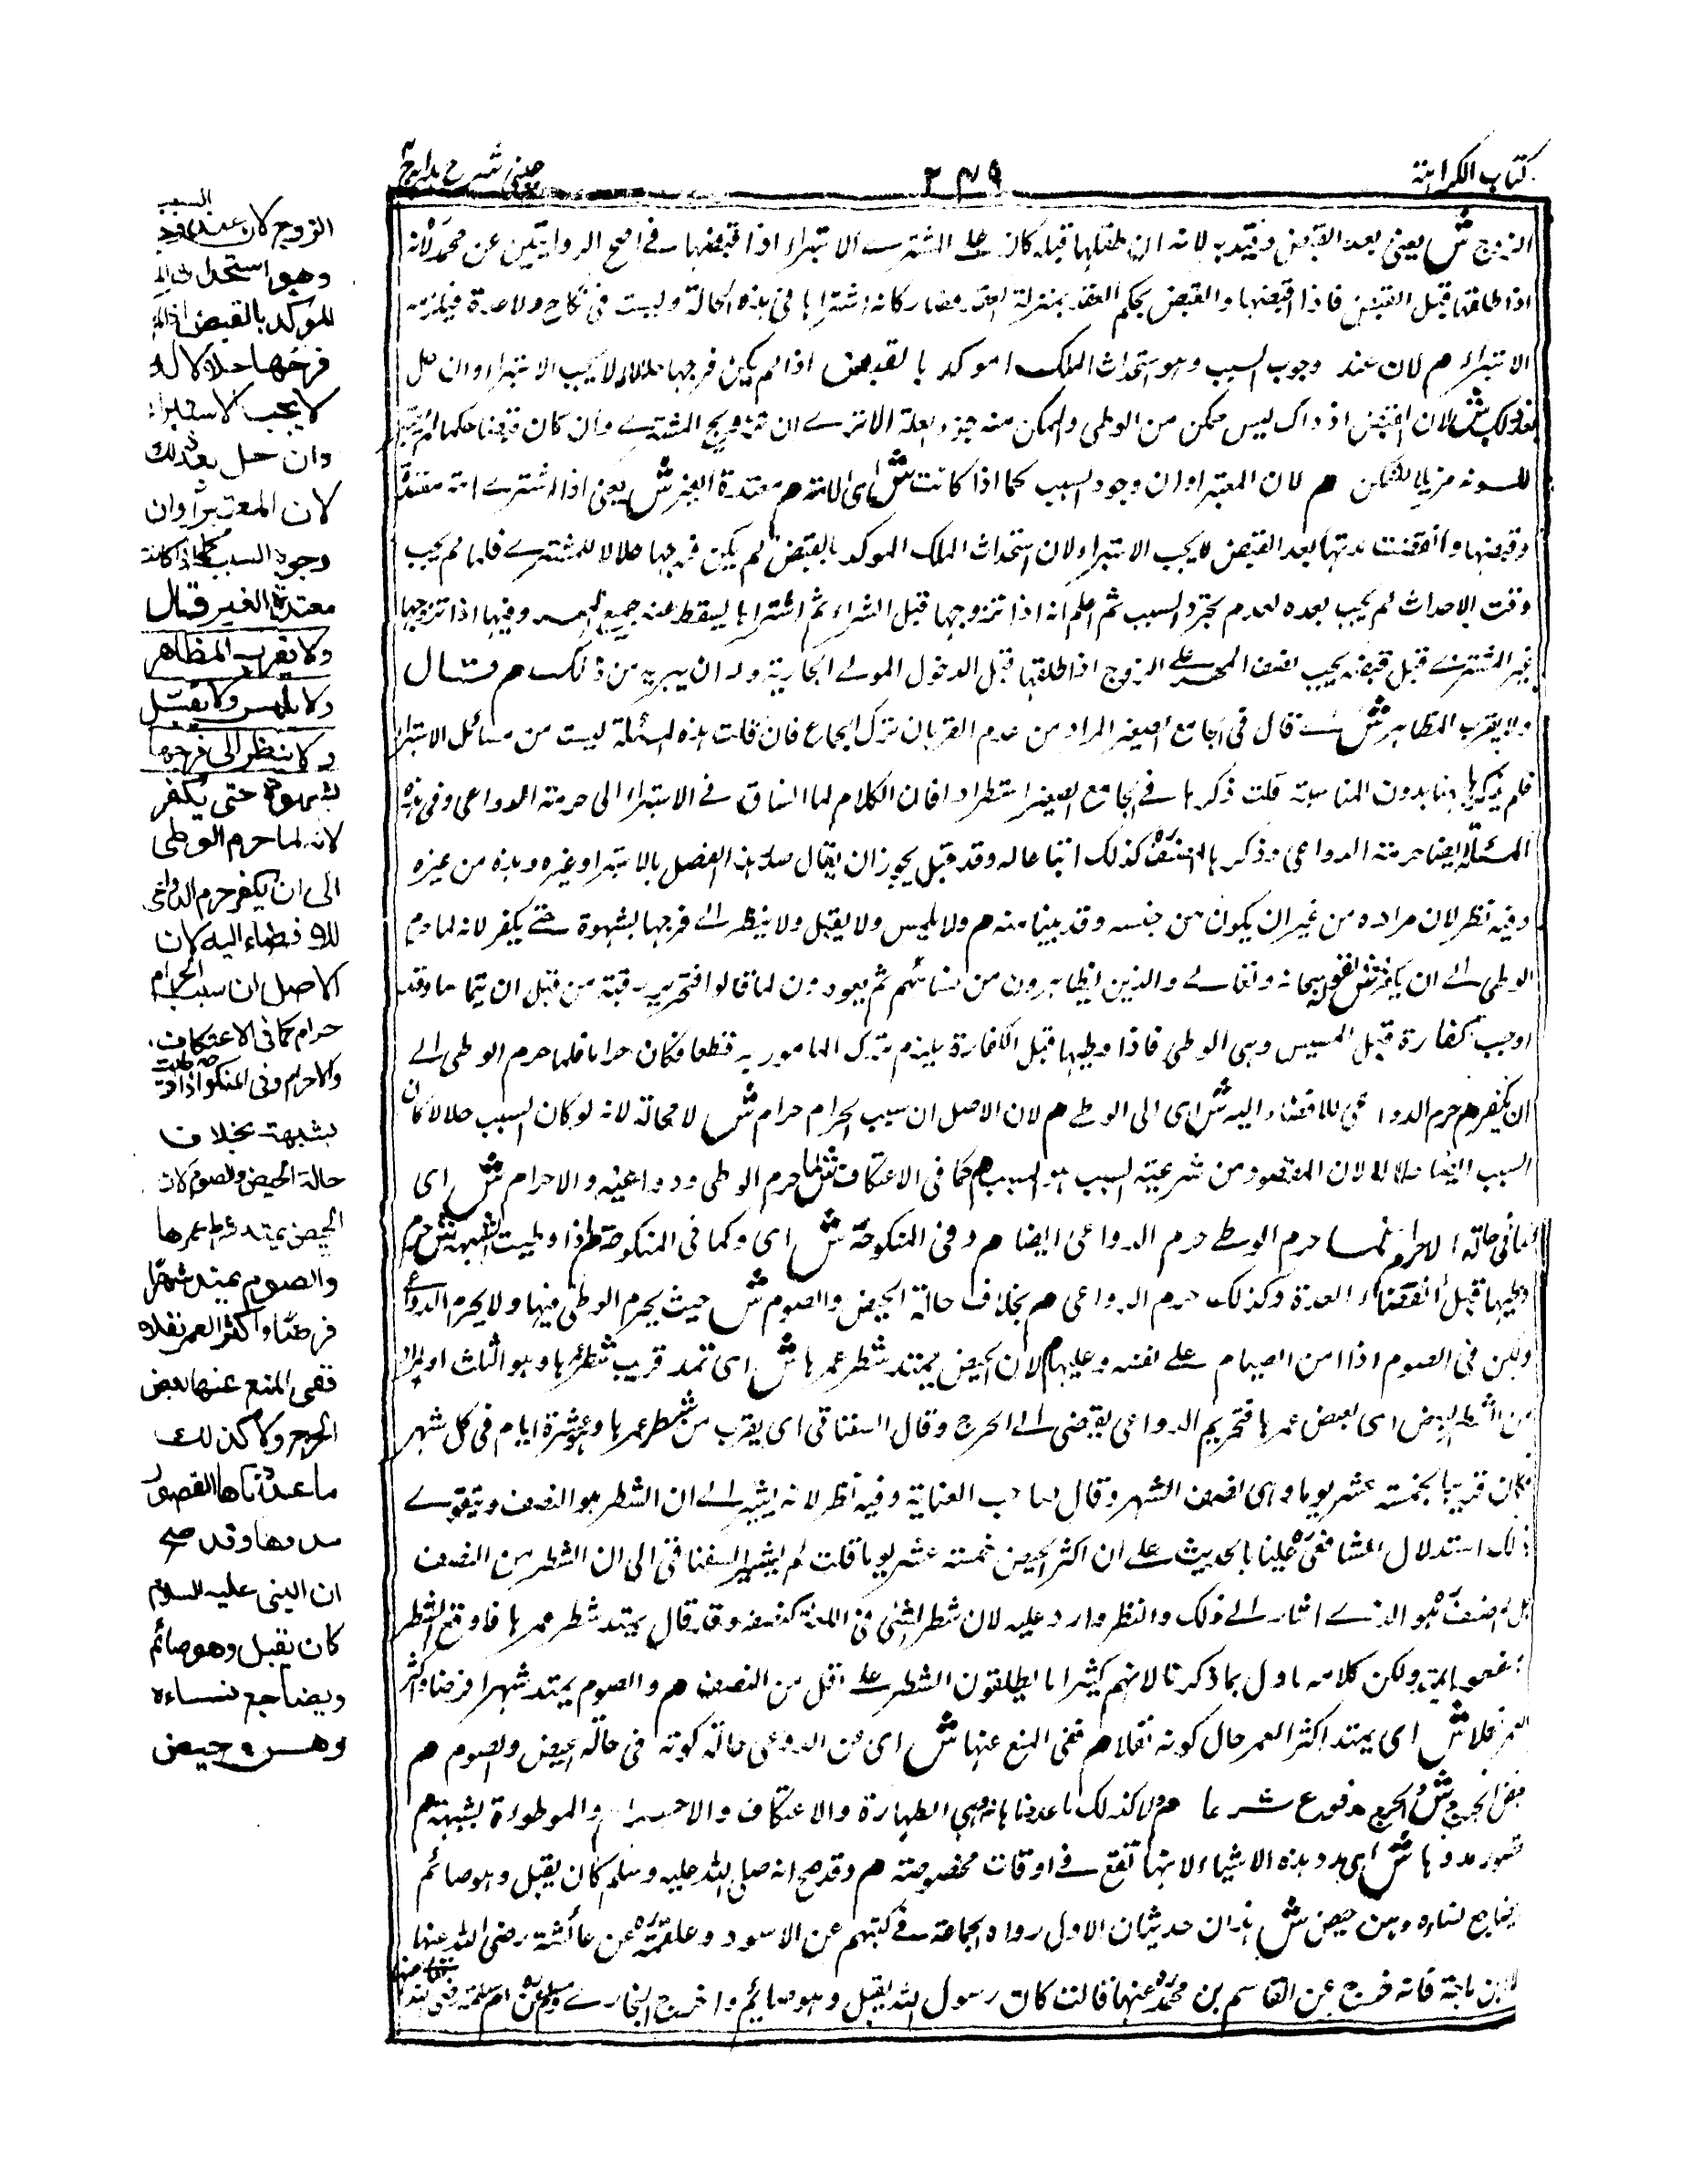 كتاب الكراهية
٢٤٩
عيني شرح هداية ج ٤
الزوج ش يعني بعد القبض وقيد به لانه ان طلقها قبله كان على المشتري الاستبراء اذا قبضها في اصح الروايتين عن محمد لانه
اذا طلقها قبل القبض فاذا قبضها والقبض بحكم العقد بمنزلة العقد فصار كانه اشتراها في هذه الحالة وليست في نكاح ولا عدة فيلزمه
الاستبراء هم لان عند وجوب السبب وهو استحداث الملك الموكد بالقبض اذا لم يكن فرجها حلالا له لا يجب الاستبراء وان حل
بعد ذلك ش لان القبض اذ ذاك ليس ممكن من الوطي والممكن منه جزء العلة الا ترى ان تزويج المشتري وان كان قبضا حكما
لكونه مزيلا للتمكن هم لان المعتبر اوان وجود السبب كما اذا كانت ش اي الامة هم معتدة الغير ش يعني اذا اشترى امة معتدة
وقبضها وانقضت عدتها بعد القبض لا يجب الاستبراء لان استحداث الملك الموكد بالقبض لم يكن فرجها حلالا للمشتري فلما لم يجب
وقت الاحداث لم يجب بعده لعدم تجرد السبب ثم اعلم انه اذا تزوجها قبل الشراء ثم اشتراها يسقط عنه جميع المهر وفيها اذا تزوجها
غير المشتري قبل قبضه يجب نصف المهر على الزوج اذا طلقها قبل الدخول المولى الجارية وله ان يبريه من ذلك هم قال
ولا يقرب المظاهر ش اي قال في الجامع الصغير المراد من عدم القربان ترك الجماع فان قلت هذه المسئلة ليست من مسائل الاستبراء
فلم ذكرها هنا بدون المناسبة قلت ذكرها في الجامع الصغير استطرادا فان الكلام لما انساق في الاستبراء الى حرمة الدواعي وفي هذه
المسئلة ايضا حرمة الدواعي وذكرها المصنف كذلك اتباعا له وقد قيل يجوز ان يقال هذا الفصل بالاستبراء وغيره وهذه من غيره
وفيه نظر لان مراده من غير ان يكون من جنسه وقد بينا منه هم ولا يلمس ولا يقبل ولا ينظر الى فرجها بشهوة حتى يكفر لانه لما حرم
الوطي الى ان يكفر ش لقوله سبحانه وتعالى والذين يظاهرون من نسائهم ثم يعودون لما قالوا فتحرير رقبة من قبل ان يتماسا وقد
اوجب كفارة قبل المسيس وهي الوطي فاذا وطيها قبل الكفارة يلزم ترك المامور به قطعا فكان حراما فلما حرم الوطي الى
ان يكفر هم حرم الدواعي للافضاء اليه ش اي الى الوطي هم لان الاصل ان سبب الحرام حرام ش لا محالة لانه لو كان السبب حلالا كان
السبب ايضا حلالا لان المقصود من شرعية السبب هو المسبب هم كما في الاعتكاف ش لما حرم الوطي ودواعيه والاحرام ش اي
كما في حالة الاحرام لما حرم الوطي حرم الدواعي ايضا هم وفي المنكوحة ش اي وكما في المنكوحة هم اذا وطيت بشبهة ش حرم
وطيها قبل انقضاء العدة وكذلك حرم الدواعي هم بخلاف حالة الحيض والصوم ش حيث يحرم الوطي فيها ولا يحرم الدواعي
ولكن في الصوم اذا امن الصيام على نفسه وعليها هم لان الحيض يمتد شطر عمرها ش اي تمد قريب شطرها وهو الثلث او المراد
من الشطر البعض اي بعض عمرها فتحريم الدواعي يفضي الى الحرج وقال السغناقي اي يقرب من شطر عمرها وهو عشرة ايام في كل شهر
فكان قريبا بخمسة عشر يوما وهي نصف الشهر وقال صاحب العناية وفيه نظر لانه يشير الى ان الشطر هو النصف ويتقوى
بذلك استدلال الشافعي علينا بالحديث على ان اكثر الحيض خمسة عشر يوما قلت لم يشير السغناقي الى ان الشطر من النصف
بل المصنف هو الذي اشار الى ذلك والنظر وارد عليه لان شطر الشئ في اللغة كنصفه وقد قال يمتد شطر عمرها فاوقع الشطر
ولكن كلامه ماول بما ذكرنا لانهم كثيرا ما يطلقون الشطر على اقل من النصف هم والصوم يمتد شهرا فرضا واكثر
العمر نفلا ش اي يمتد اكثر العمر حال كونه نفلا هم ففي المنع عنها ش اي عن الدواعي حالة كونه في حالة الحيض والصوم هم
بعض الحرج ش والحرج مدفوع شرعا هم ولا كذلك ما عددناها ش وهي الظهارة والاعتكاف والاحرام والموطوءة بشبهة هم
لقصور مددها ش اي مدد هذه الاشياء لانها تقع في اوقات مخصوصة هم وقد صح انه صلى الله عليه وسلم كان يقبل وهو صائم
ويضاجع نساءه وهن حيض ش هذان حديثان الاول رواه الجماعة في كتبهم عن الاسود وعلقمة عن عائشة رضي الله عنها
الا ابن ماجة فانه خرج عن القاسم بن محمد عنها قالت كان رسول الله يقبل وهو صائم واخرج البخاري ومسلم عن ام سلمة
الزوج لان عند وجود السبب
وهو استحداث الملك
الموكد بالقبض اذا لم يكن
فرجها حلالا له
لا يجب الاستبراء
وان حل بعد ذلك
لان المعتبر اوان
وجود السبب كما اذا كانت
معتدة الغير قال
ولا يقرب المظاهر
ولا يلمس ولا يقبل
ولا ينظر الى فرجها
بشهوة حتى يكفر
لانه لما حرم الوطي
الى ان يكفر حرم الدواعي
للافضاء اليه لان
الاصل ان سبب الحرام
حرام كما في الاعتكاف
والاحرام وفي المنكوحة اذا وطئت
بشبهة بخلاف
حالة الحيض والصوم لان
الحيض يمتد شطر عمرها
والصوم يمتد شهرا
فرضا واكثر العمر نفلا
ففي المنع عنها بعض
الحرج ولا كذلك
ما عددناها لقصور
مددها وقد صح
ان النبي عليه السلام
كان يقبل وهو صائم
ويضاجع نساءه
وهن حيض